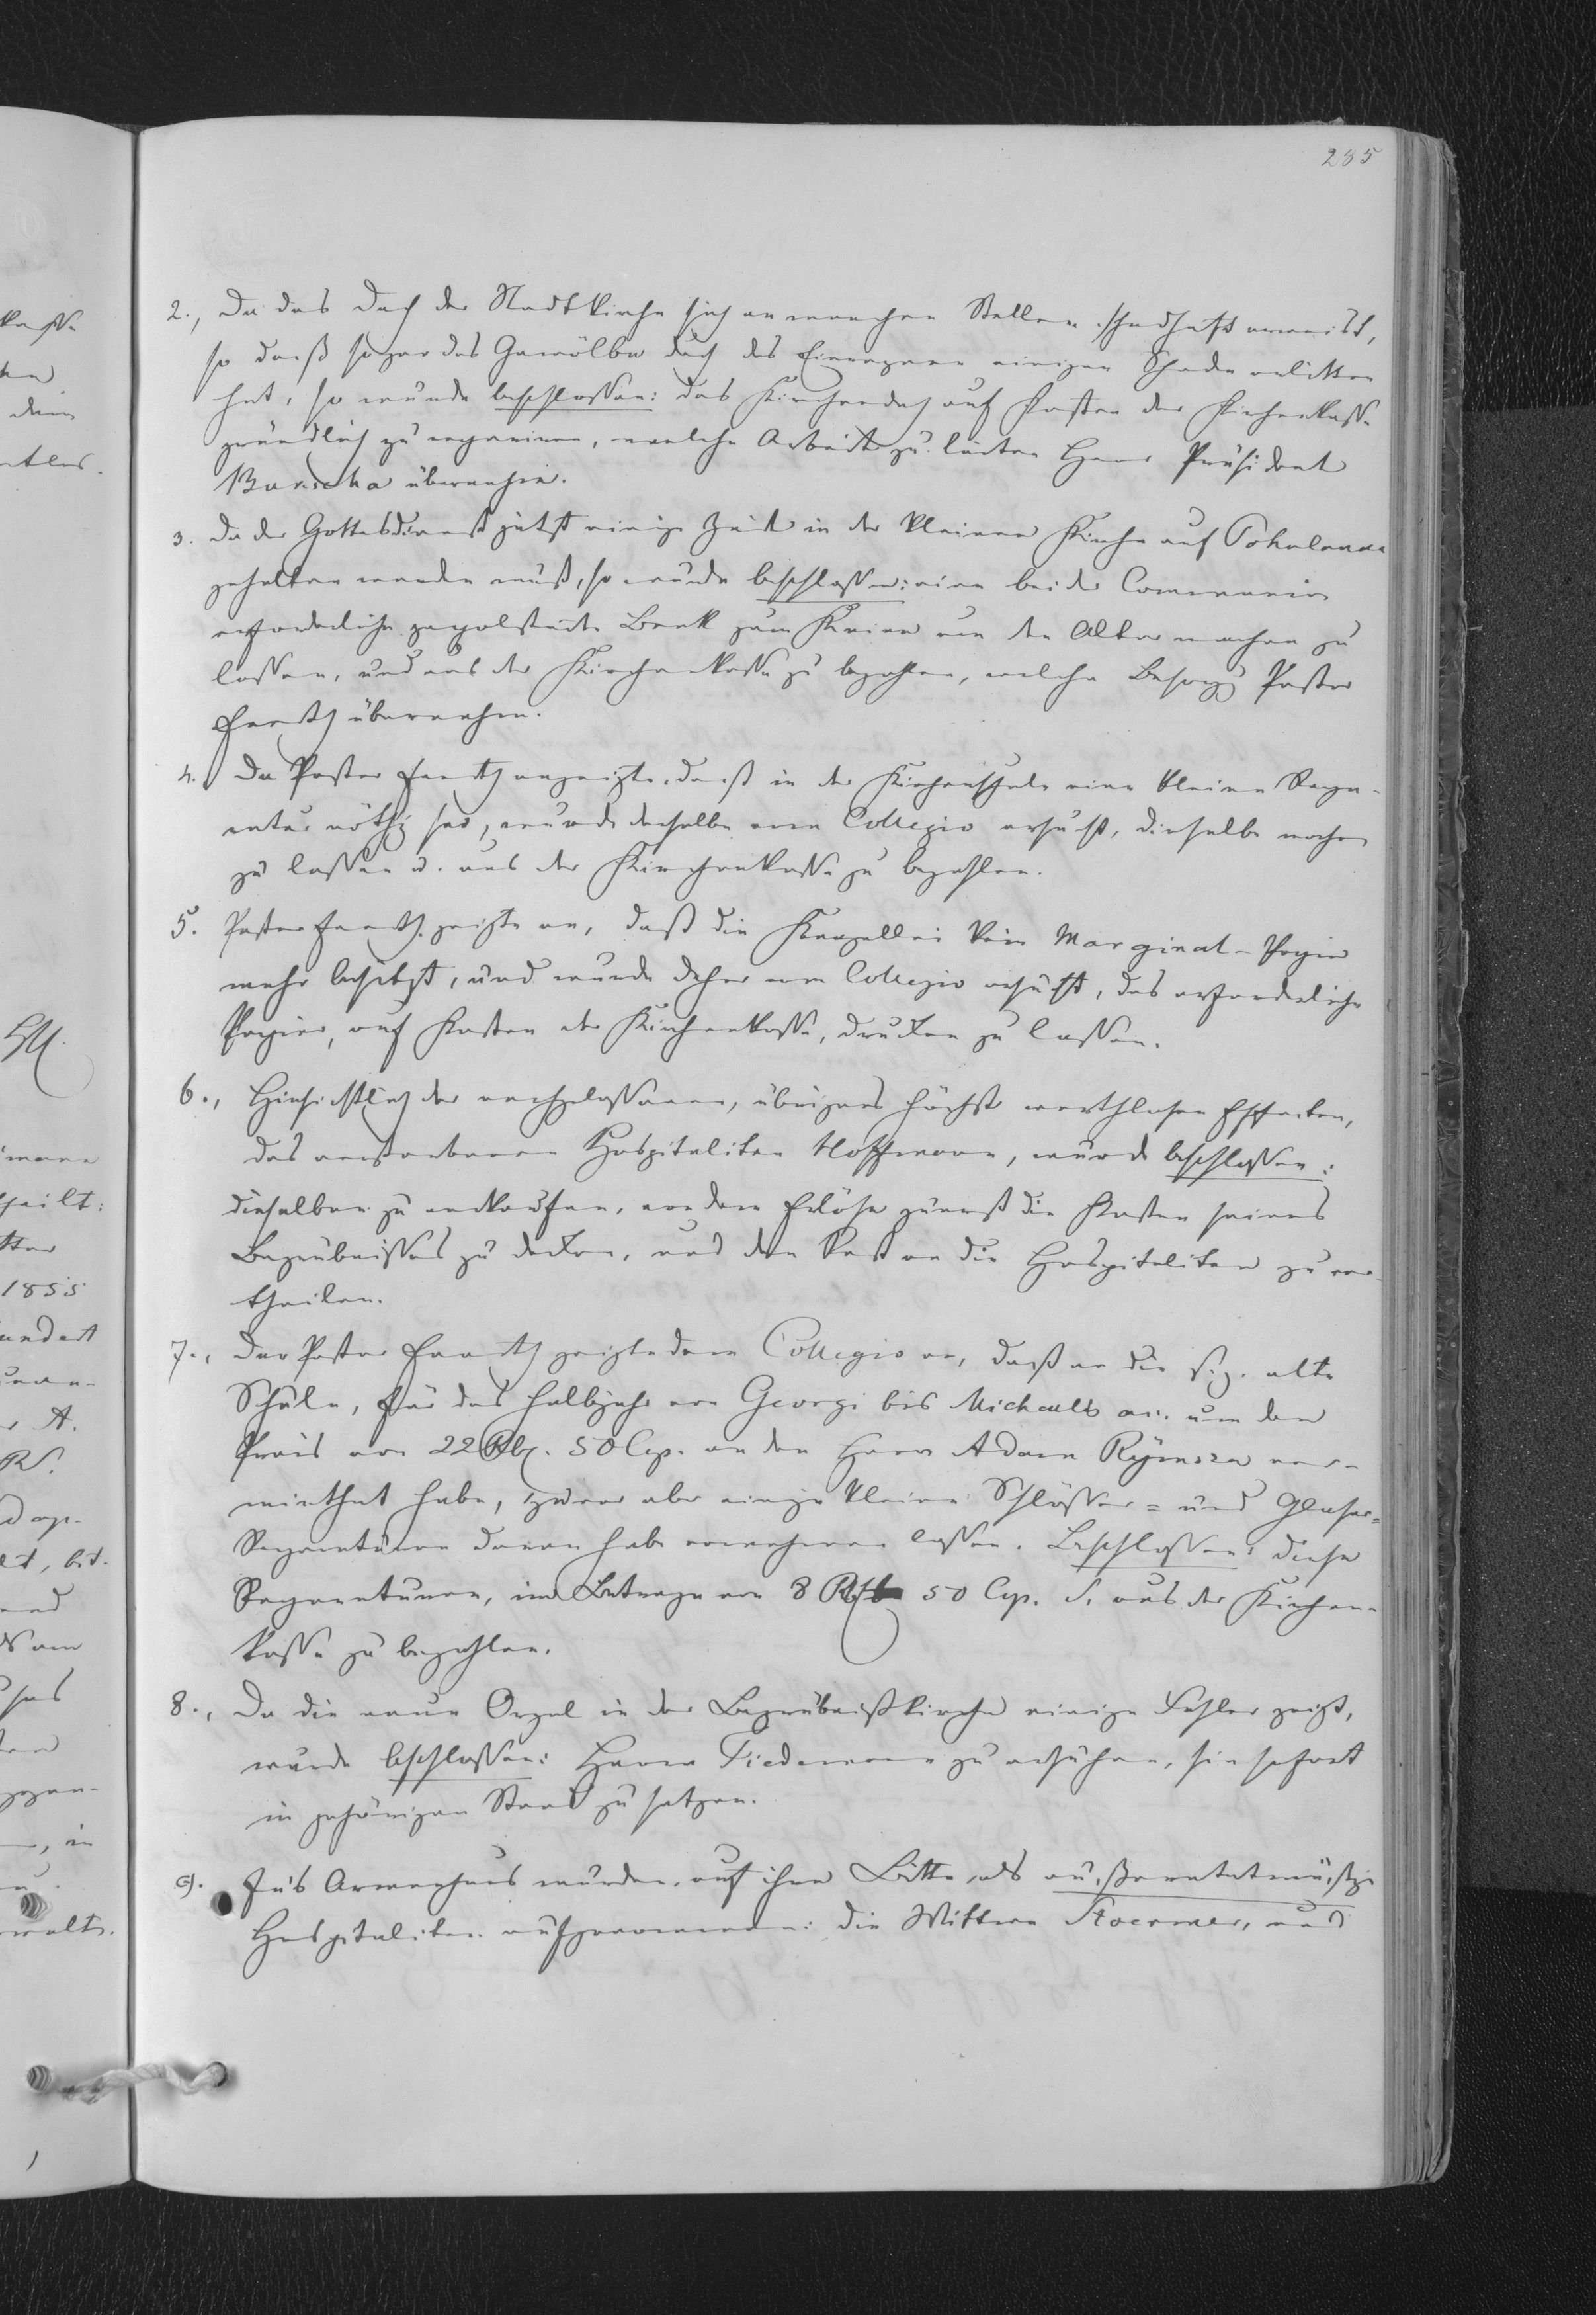 235
2., Da das Dach der Stadtkirche sich an manchen Stellen schadhaft erweist,
so daß sogar das Gewölbe durch das Einregnen einigen Schaden erlitten
hat, so wurde beschlossen: das Kirchendach auf Kosten der Kirchenkasse
gründlich zu repariren, welche Arbeit zu leiten Herr Präsident
Barscha übernahm.
3. Da der Gottesdienst jetzt einige Zeit in der kleinen Kirche auf Pohulanka
gehalten werden muß, so wurde beschlossen: eine bei der Communion
erforderliche gepolsterte Bank zum Knien um den Altar machen zu
lassen, und aus der Kirchenkasse zu bezahlen, welche Besorg. Pastor
übernahm.
4. Da Pastor anzeigte, daß in der Kirchenschule eine kleine Repa-
ratur nöthig sei, wurde derselbe vom Collegio ersucht, dieselbe machen
zu lassen u. aus der Kirchenkasse zu bezahlen.
5. Pastor zeigte an, daß die Kanzellei kein Marginal-Papier
mehr besitzt, und wurde daher vom Collegio ersucht, das erforderliche
Papier, auf Kosten der Kirchenkasse, drucken zu lassen.
6., Hinsichtlich der nachgelassenen, übrigens höchst werthlosen Effecten,
des verstorbenen Hospitaliten Hoffmann, wurde beschlossen:
dieselben zu verkaufen, von dem Erlöse zuerst die Kosten seines
Begräbnisses zu decken, und den Rest an die Hospitaliten zu ver-
theilen.
7., Der Pastor zeigte dem Collegio an, daß er die sog. alte
Schule, für das Halbjahr von Georgi bis Michaelis a.c. um den
Preis von 22 Rbl. 50 Cop. an den Herrn Adam Rymsza ver-
miethet habe, zuvor aber einige kleine Schlosser- und Glaser-
Reparaturen daran habe vornehmen lassen. Beschlossen: diese
Reparaturen, im Betrage von 8 Rbl 50 Cop. S. aus der Kirchen-
kasse zu bezahlen.
8., Da die neue Orgel in der Begräbnißkirche einige Fehler zeigt,
wurde beschlossen: Herrn Tiedemann zu ersuchen, sie sofort
in gehörigen Stand zu setzen.
9. In's Armenhaus wurden, auf ihre Bitte, als außeretatmäßige
Hospitaliten aufgenommen: die Wittwe Stoermer, und